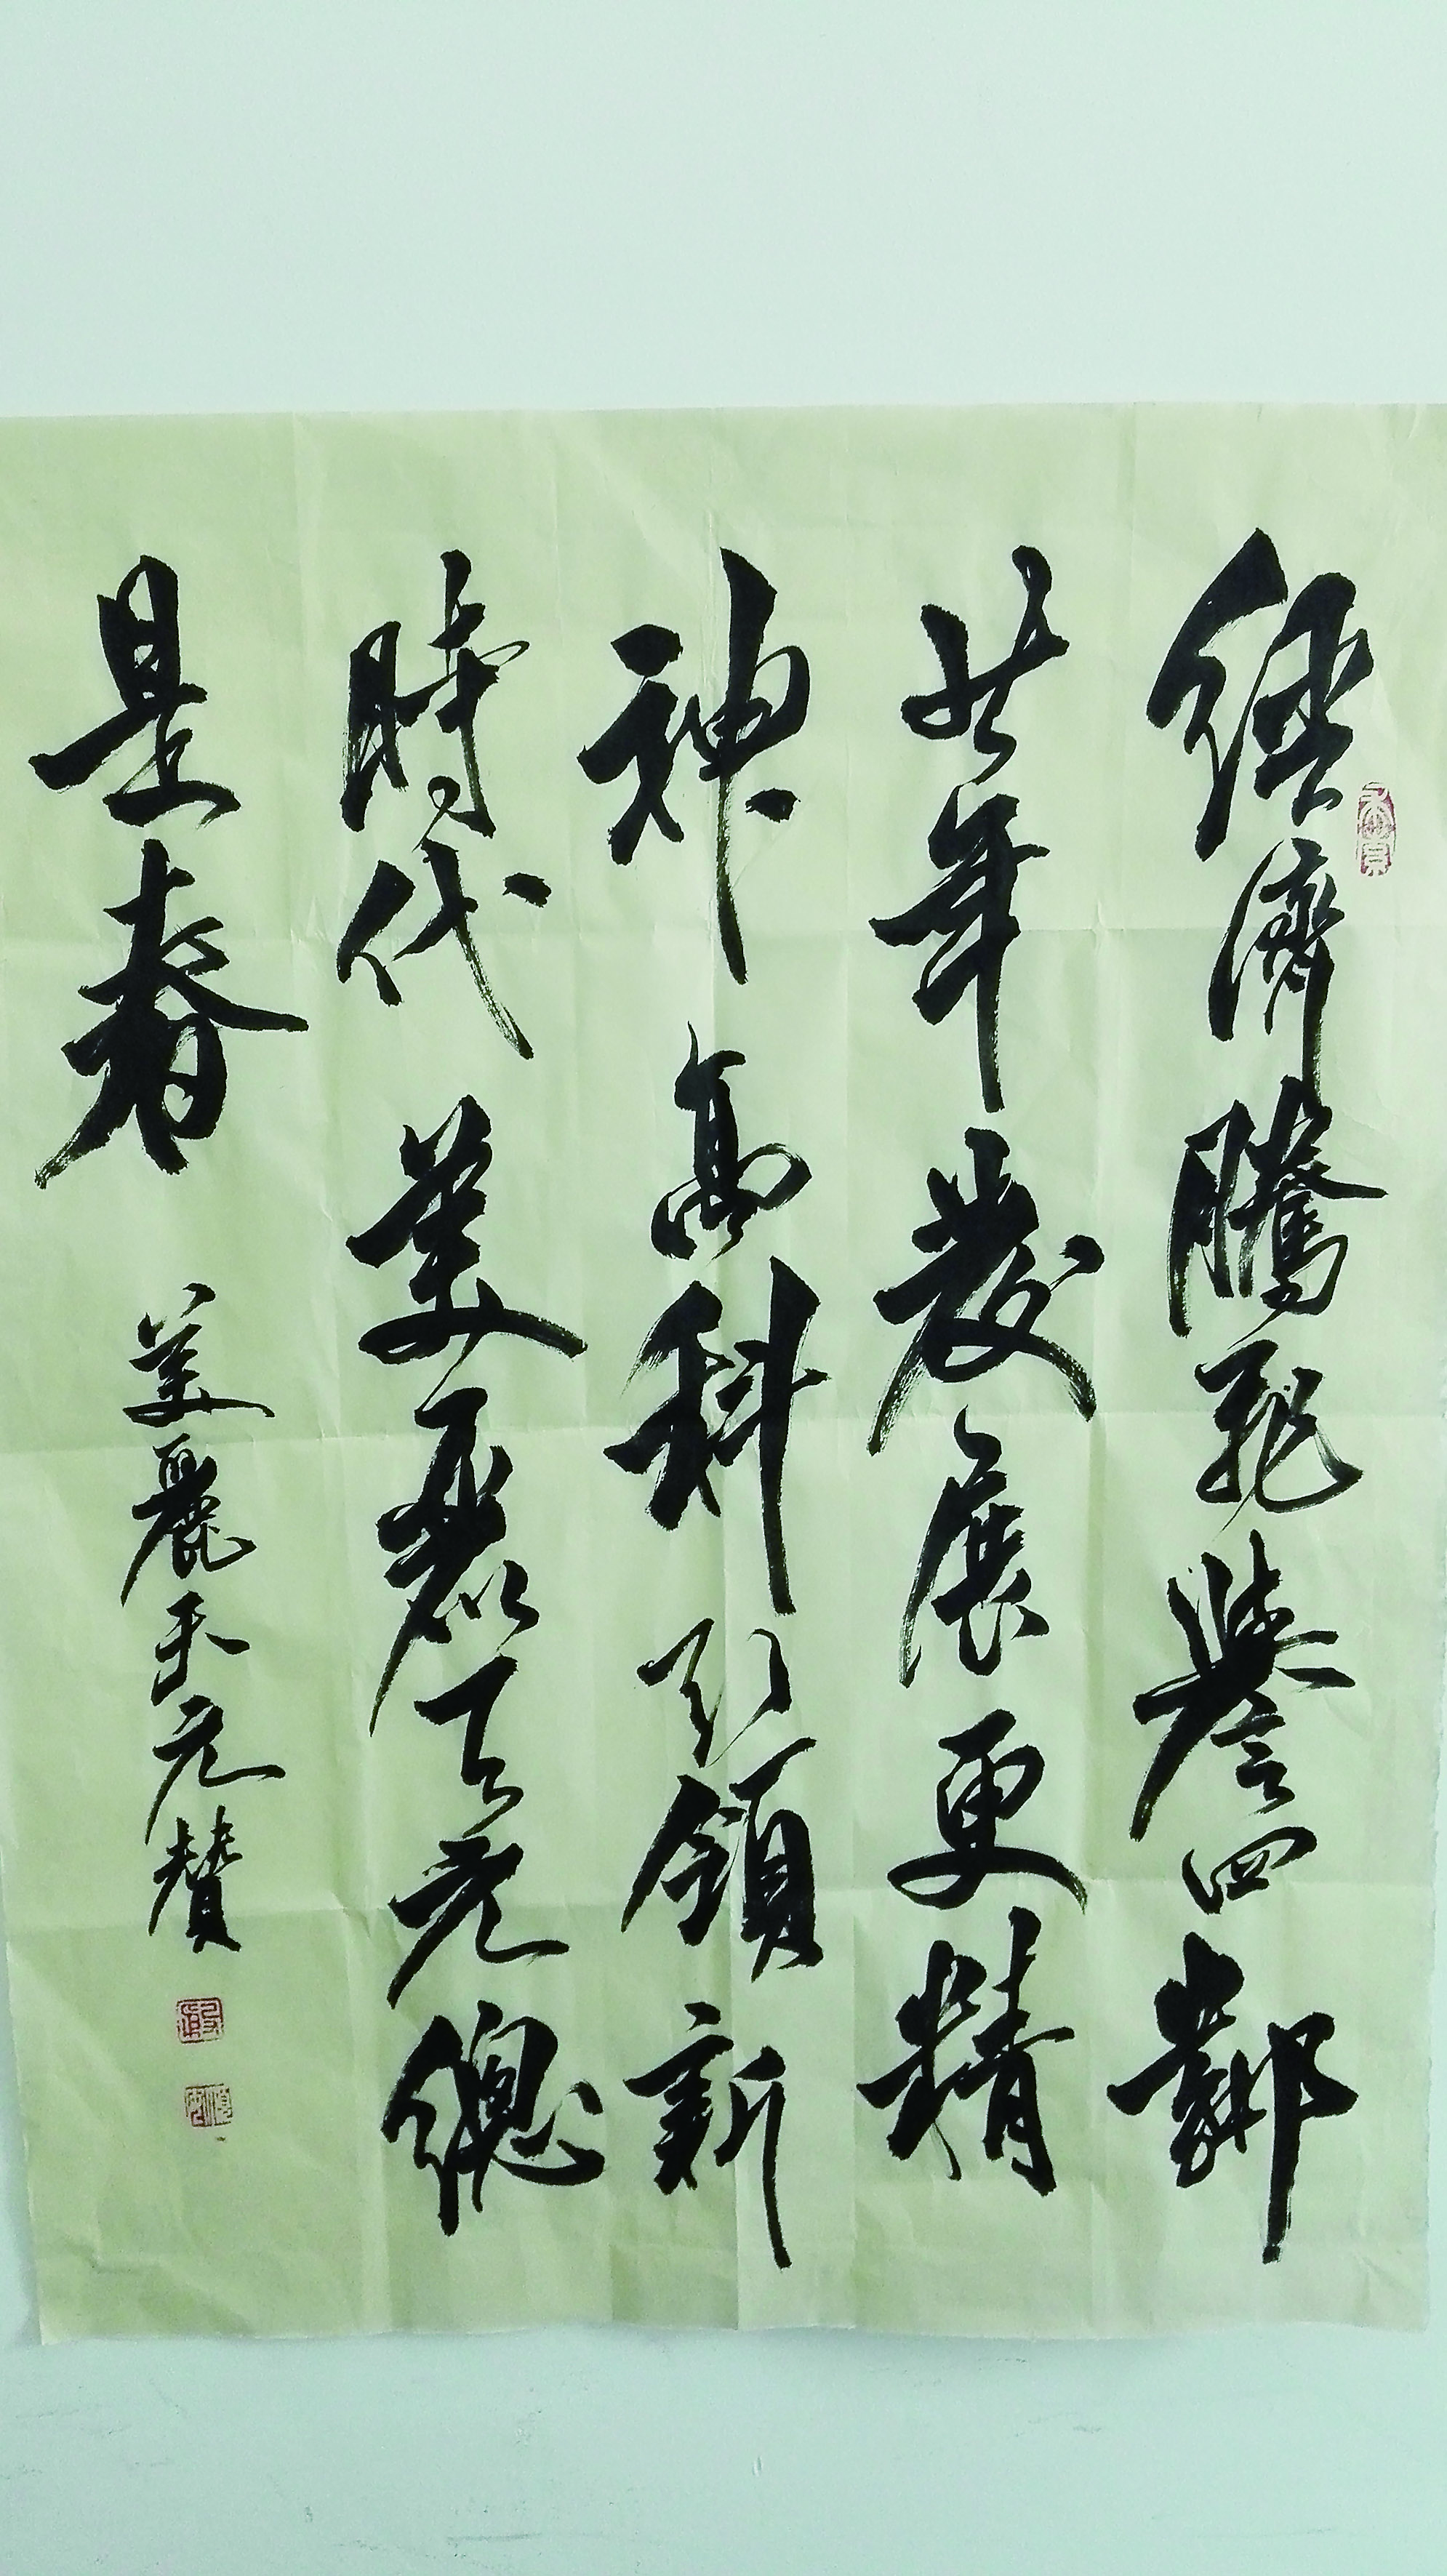 經濟騰飛譽四鄰
年發展更精
神高科引領新
時代美麗天元總
是春
美麗天元贊